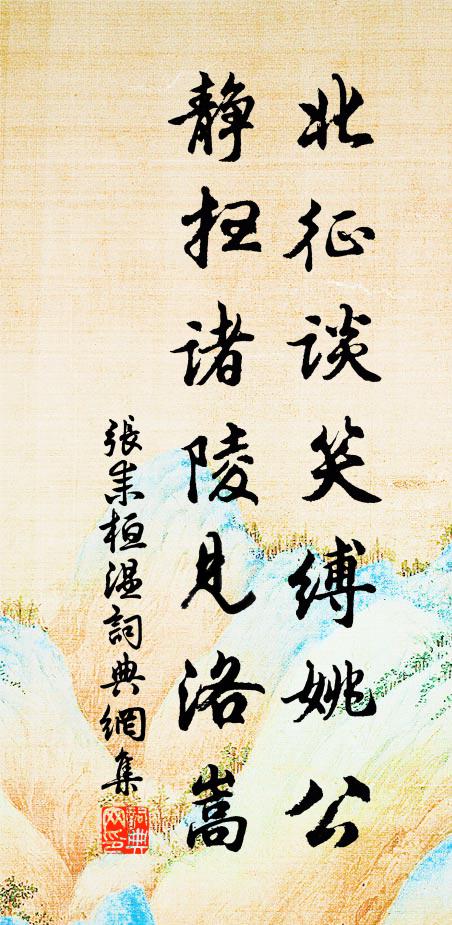 北征谈笑缚姚公
静扫诸陵见洛嵩
張耒桓温詞典網集
詞典網印